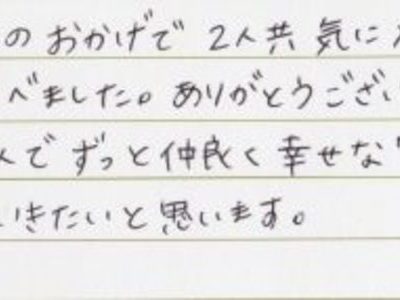 のおかげで 2人共 気に
べました。ありがとうござい
人で ずっと仲良く 幸せな
いきたいと思います。